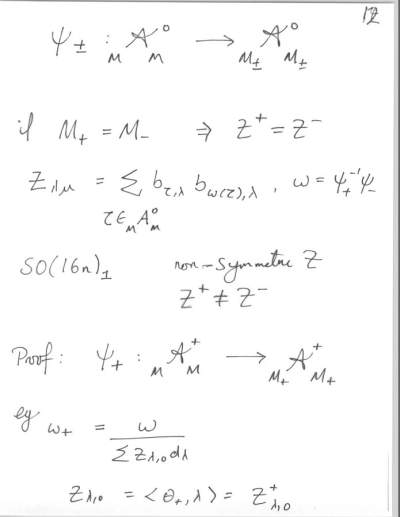 12
Ψ± : _M𝒜_M° ⟶ _{M±}𝒜_{M±}°
if M₊ = M₋ ⇒ Z⁺ = Z⁻
Z_{λ,μ} = Σ b_{τ,λ} b_{ω(τ),λ} , ω = Ψ₊⁻¹Ψ₋
τ ∈ _M𝒜_M°
SO(16n)₁ non-symmetric Z
Z⁺ ≠ Z⁻
Proof: Ψ₊ : _M𝒜_M⁺ ⟶ _{M₊}𝒜_{M₊}⁺
eg ω₊ = ω / Σ Z_{λ,0} d_λ
Z_{λ,0} = ⟨θ₊, λ⟩ = Z⁺_{λ,0}